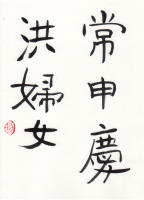 常申慶
洪婦女